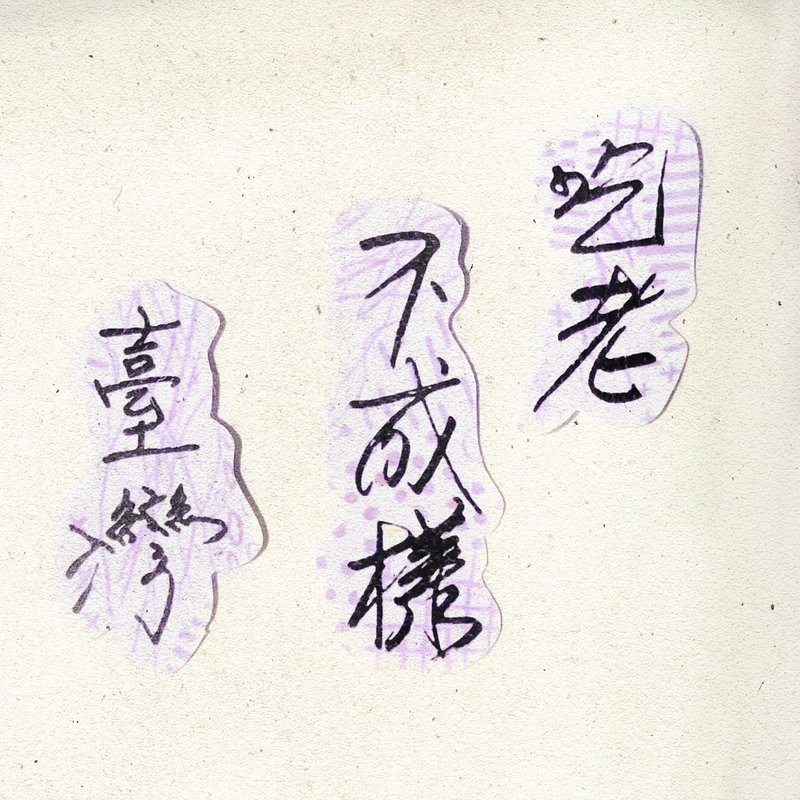 吃老
不成樣
臺灣